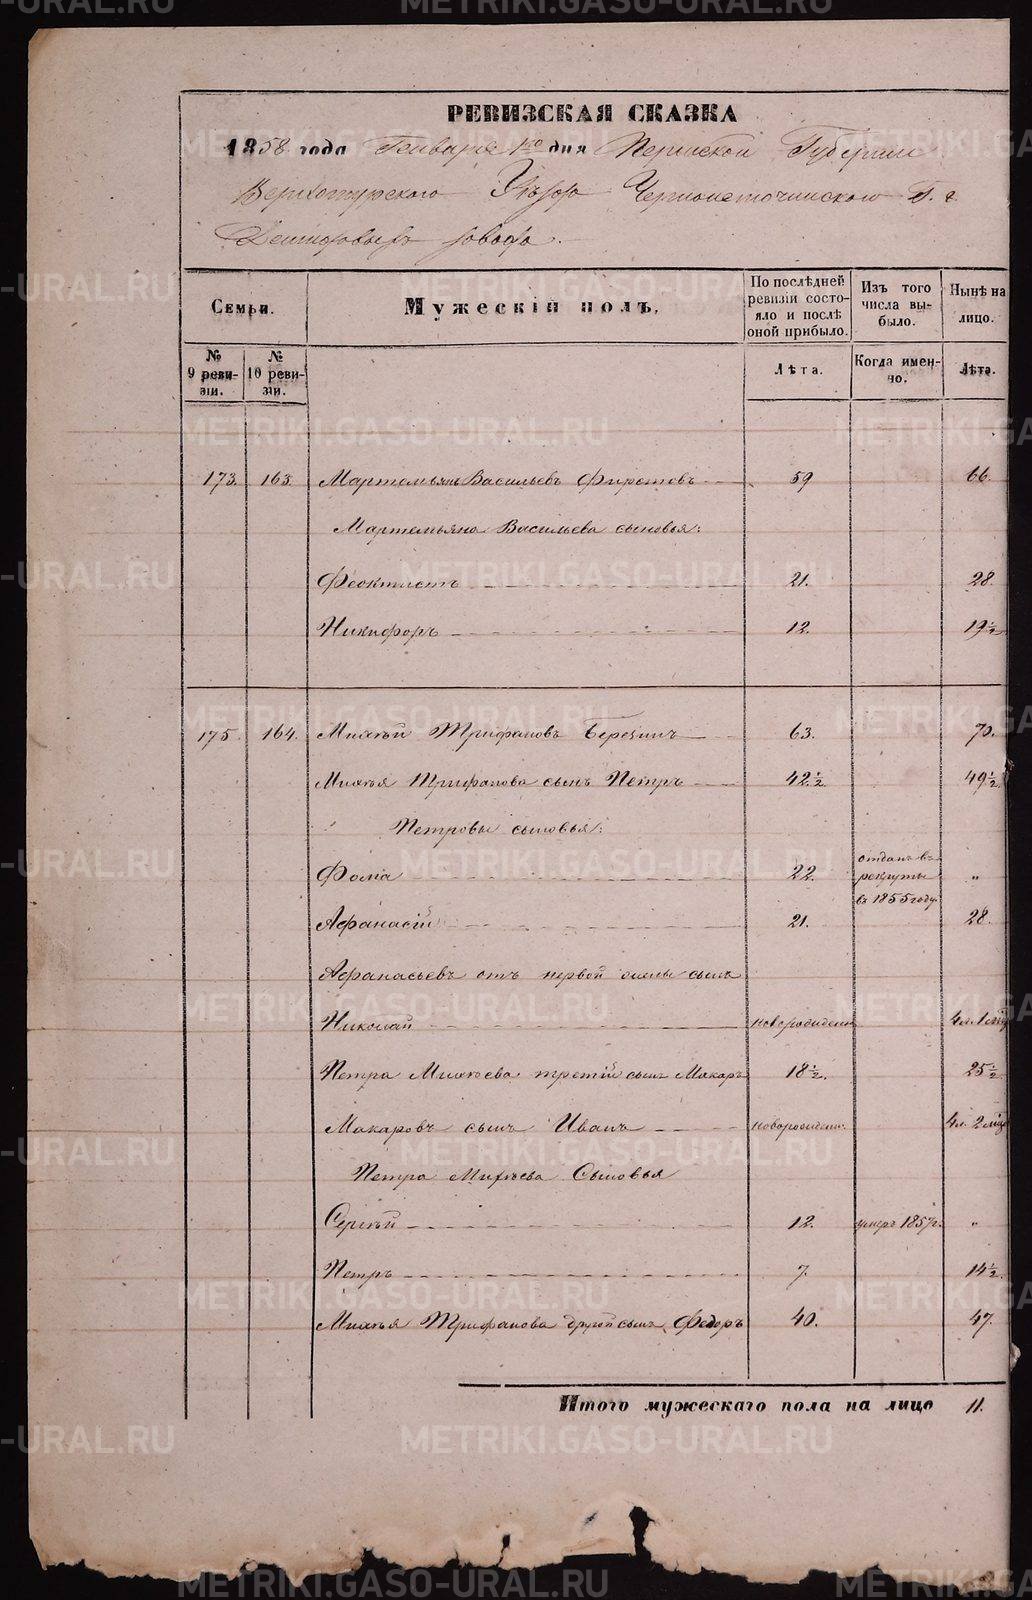 РЕВИЗСКАЯ СКАЗКА
1858 года Генваря 1го дня Пермской Губернии
Верхотурскаго Уѣзда Черноисточинскаго Г. г.
Демидовыхъ завода.
Семьи.
Мужескій полъ.
По послѣдней ревизіи состояло и послѣ оной прибыло.
Изъ того числа выбыло.
Нынѣ на лицо.
№ 9 ревизіи.
№ 10 ревизіи.
Лѣта.
Когда именно.
Лѣта.
173. 163. Мартемьянъ Васильевъ Фирстовъ 59 66.
Мартемьяна Васильева сыновья:
Феоктистъ 21. 28.
Никифоръ 12. 19½
175. 164. Михѣй Трифановъ Березинъ 63. 70.
Михѣя Трифанова сынъ Петръ 42½ 49½
Петровы сыновья:
Фома 22. отданъ въ рекруты въ 1855 году. "
Афанасій 21. 28.
Афанасьевъ отъ первой жены сынъ
Николай новорожденъ 4 л. 1 мѣс
Петра Михѣева третій сынъ Макаръ 18½. 25½
Макаровъ сынъ Иванъ новорожденъ. 4 л. 2 мѣс
Петра Михѣева Сыновья
Сергѣй 12. умеръ 1857 г. "
Петръ 7. 14½.
Михѣя Трифанова другой сынъ Федоръ 40. 47.
Итого мужескаго пола на лицо 11.
METRIKI.GASO-URAL.RU